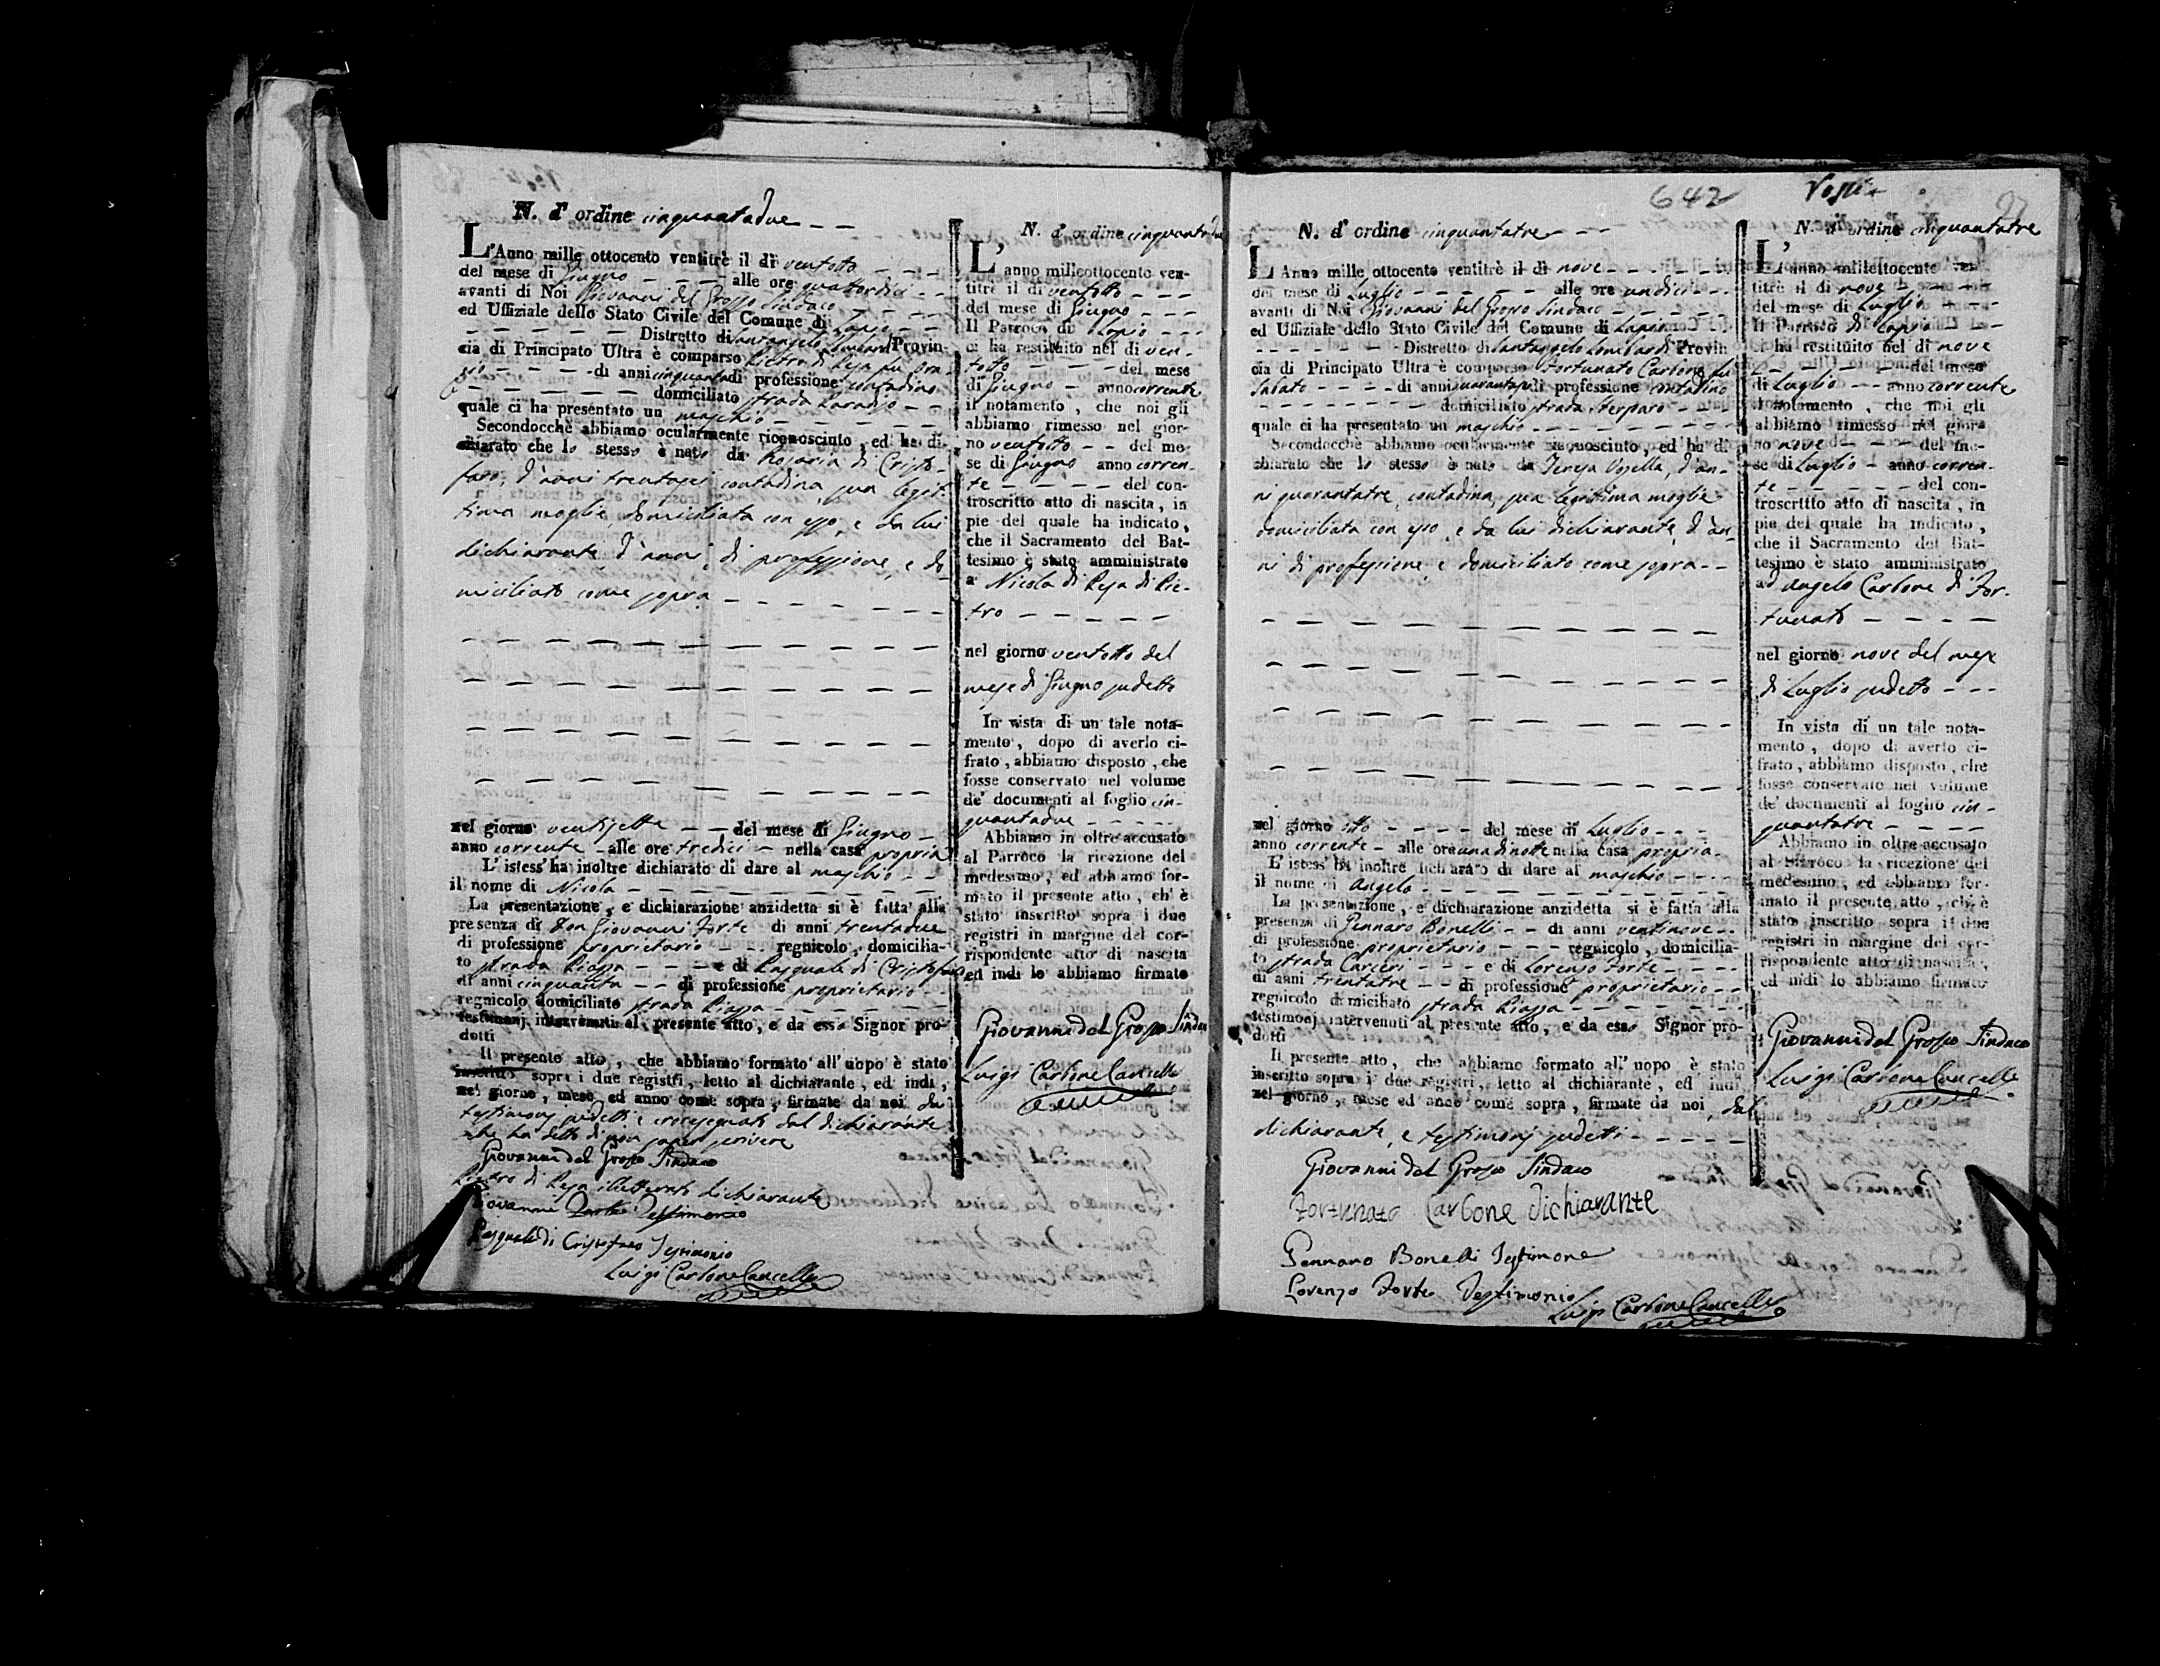 N. d' ordine cinquantadue
L'Anno mille ottocento ventitrè il dì ventotto
del mese di Giugno alle ore quattordici
avanti di Noi Giovanni del Grosso Sindaco
ed Uffiziale dello Stato Civile del Comune di Lapio
Distretto di Santangelo Lombardi Provin-
cia di Principato Ultra è comparso Pietro di Reja fu
di anni cinquanta di professione contadino
domiciliato strada Paradiso
quale ci ha presentato un maschio
Secondocchè abbiamo ocularmente riconosciuto, ed ha di-
chiarato che lo stesso è nato da Rosaria di Cristo-
faro, d'anni trentasei contadina sua legit-
tima moglie domiciliata con esso, e da lui
dichiarante, d'anni, di professione, e do-
miciliato come sopra
nel giorno ventisette del mese di Giugno
anno corrente alle ore tredici nella casa propria
L'istess' ha inoltre dichiarato di dare al maschio
il nome di Nicola
La presentazione, e dichiarazione anzidetta si è fatta alla
presenza di Don Giovanni Forte di anni trentadue
di professione proprietario regnicolo, domicilia-
to strada Piazza e di Pasquale di Cristofaro
di anni cinquanta di professione proprietario
regnicolo domiciliato strada Piazza
testimonj intervenuti al presente atto, e da esso Signor pro-
dotti
Il presente atto, che abbiamo formato all' uopo è stato
inscritto sopra i due registri, letto al dichiarante, ed indi,
nel giorno, mese, ed anno come sopra, firmate da noi da
testimonj sudetti e crocesegnato dal dichiarante
che ha detto di non saper scrivere
Giovanni del Grosso Sindaco
Pietro di Reja illetterato dichiarante
Giovanni Forte Testimonio
Pasquale di Cristofaro Testimonio
Luigi Carbone Cancelle
N. d' ordine cinquantadue
L' anno milleottocento ven-
titrè il dì ventotto
del mese di Giugno
Il Parroco di Lapio
ci ha restituito nel dì ven-
totto del mese
di Giugno anno corrente
il notamento, che noi gli
abbiamo rimesso nel gior-
no ventotto del me-
se di Giugno anno corren-
te del con-
troscritto atto di nascita, in
pie del quale ha indicato,
che il Sacramento del Bat-
tesimo è stato amministrato
a Nicola di Reja di Pie-
tro
nel giorno ventotto del
mese di Giugno sudetto
In vista di un tale nota-
mento, dopo di averlo ci-
frato, abbiamo disposto, che
fosse conservato nel volume
de' documenti al foglio cin-
quantadue
Abbiamo in oltre accusato
al Parroco la ricezione del
medesimo, ed abbiamo for-
mato il presente atto, ch' è
stato inscritto sopra i due
registri in margine del cor-
rispondente atto di nascita
ed indi lo abbiamo firmato
Giovanni del Grosso Sindaco
Luigi Carbone Cancelle
642
N. d' ordine cinquantatre
L'Anno mille ottocento ventitrè il dì nove
del mese di Luglio alle ore undici
avanti di Noi Giovanni del Grosso Sindaco
ed Uffiziale dello Stato Civile del Comune di Lapio
Distretto di Santangelo Lombardi Provin
cia di Principato Ultra è comparso Fortunato Carbone fu
Sabato di anni quarantasei professione contadino
domiciliato strada Sterparo
quale ci ha presentato un maschio
Secondocchè abbiamo ocularmente riconosciuto, ed ha di
chiarato che lo stesso è nato da Teresa Vosella, d'an-
ni quarantatre, contadina, sua legittima moglie
domiciliata con esso, e da lui dichiarante, d'an-
ni di professione, e domiciliato come sopra
nel giorno otto del mese di Luglio
anno corrente alle ore una di notte nella casa propria
L'istess' ha inoltre dichiarato di dare al maschio
il nome di Angelo
La presentazione, e dichiarazione anzidetta si è fatta alla
presenza di Gennaro Bonelli di anni ventinove
di professione proprietario regnicolo, domicilia-
to strada Carceri e di Lorenzo Forte
di anni trentatre di professione proprietario
regnicolo domiciliato strada Piazza
testimonj intervenuti al presente atto, e da esso Signor pro-
dotti
Il presente atto, che abbiamo formato all' uopo è stato
inscritto sopra i due registri, letto al dichiarante, ed indi
nel giorno, mese ed anno come sopra, firmate da noi, dal
dichiarante, e testimonj sudetti
Giovanni del Grosso Sindaco
Fortunato Carbone dichiarante
Gennaro Bonelli Testimone
Lorenzo Forte Testimonio
Luigi Carbone Cancelle
N. d' ordine cinquantatre
L' anno milleottocento ven
titrè il dì nove
del mese di Luglio
Il Parroco di Lapio
ci ha restituito nel dì nove
del mese
di Luglio anno corrente
il notamento, che noi gli
abbiamo rimesso nel gior-
no nove del me-
se di Luglio anno corren-
te del con-
troscritto atto di nascita, in
pie del quale ha indicato,
che il Sacramento del Bat-
tesimo è stato amministrato
ad Angelo Carbone di For-
tunato
nel giorno nove del mese
di Luglio sudetto
In vista di un tale nota-
mento, dopo di averlo ci-
frato, abbiamo disposto, che
fosse conservato nel volume
de' documenti al foglio cin-
quantatre
Abbiamo in oltre accusato
al Parroco la ricezione del
medesimo, ed abbiamo for-
mato il presente atto, ch' è
stato inscritto sopra i due
registri in margine del cor-
rispondente atto di nascita,
ed indi lo abbiamo firmato
Giovanni del Grosso Sindaco
Luigi Carbone Cancelle